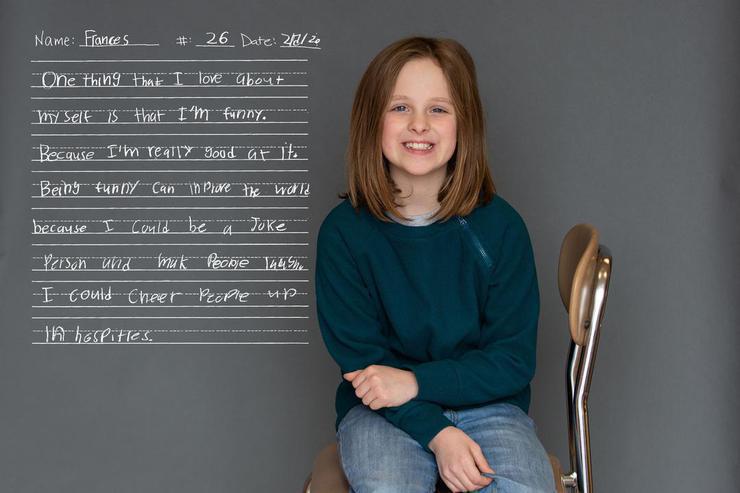 Name: Frances #: 26 Date: 2/2/20
One thing that I love about
my self is that I'm funny.
Because I'm really good at it.
Being funny can inprove the world
because I could be a Joke
Person and mak People laugh.
I could Cheer People up
in hospitles.